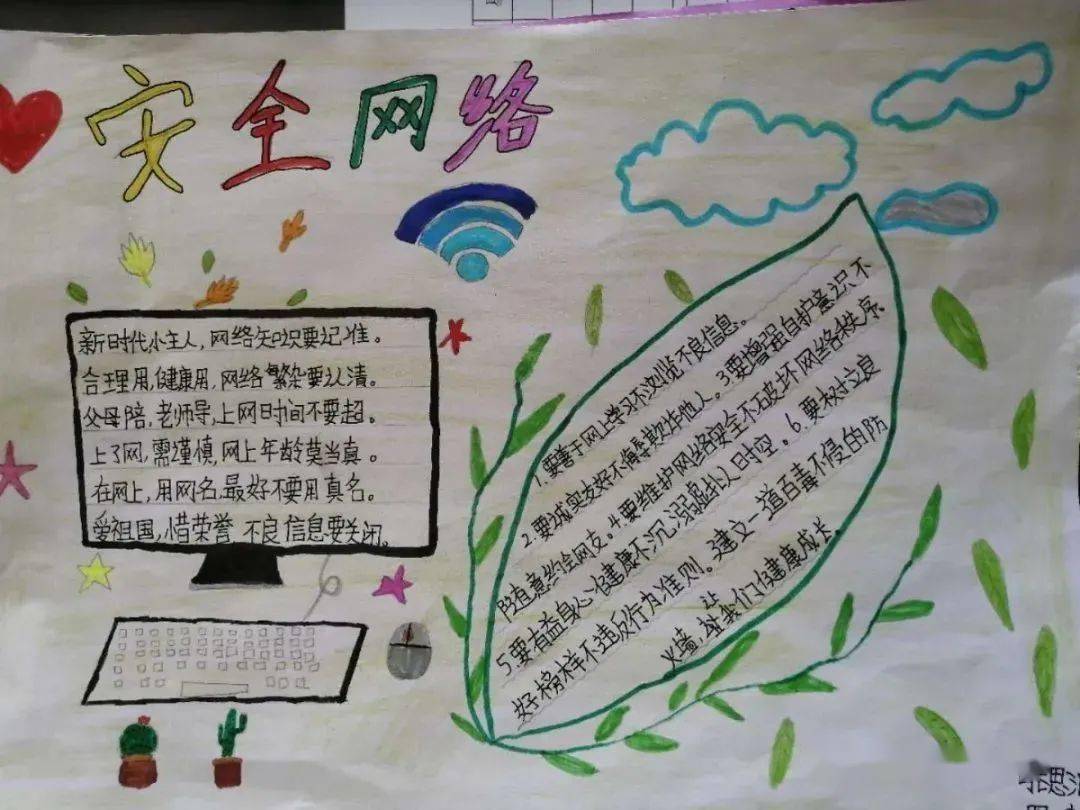 安全网络
新时代小主人,网络知识要记准。
合理用,健康用,网络繁杂要认清。
父母陪,老师导,上网时间不要超。
上了网,需谨慎,网上年龄莫当真。
在网上,用网名,最好不要用真名。
爱祖国,惜荣誉 不良信息要关闭。
1.要善于网上学习不浏览不良信息。
2.要诚实友好不侮辱欺诈他人。3.要增强自护意识不
随意约会网友。4.要维护网络安全不破坏网络秩序
5.要有益身心健康不沉溺虚拟时空。6.要树立良
好榜样不违反行为准则。建立一道百毒不侵的防
火墙,让我们健康成长。